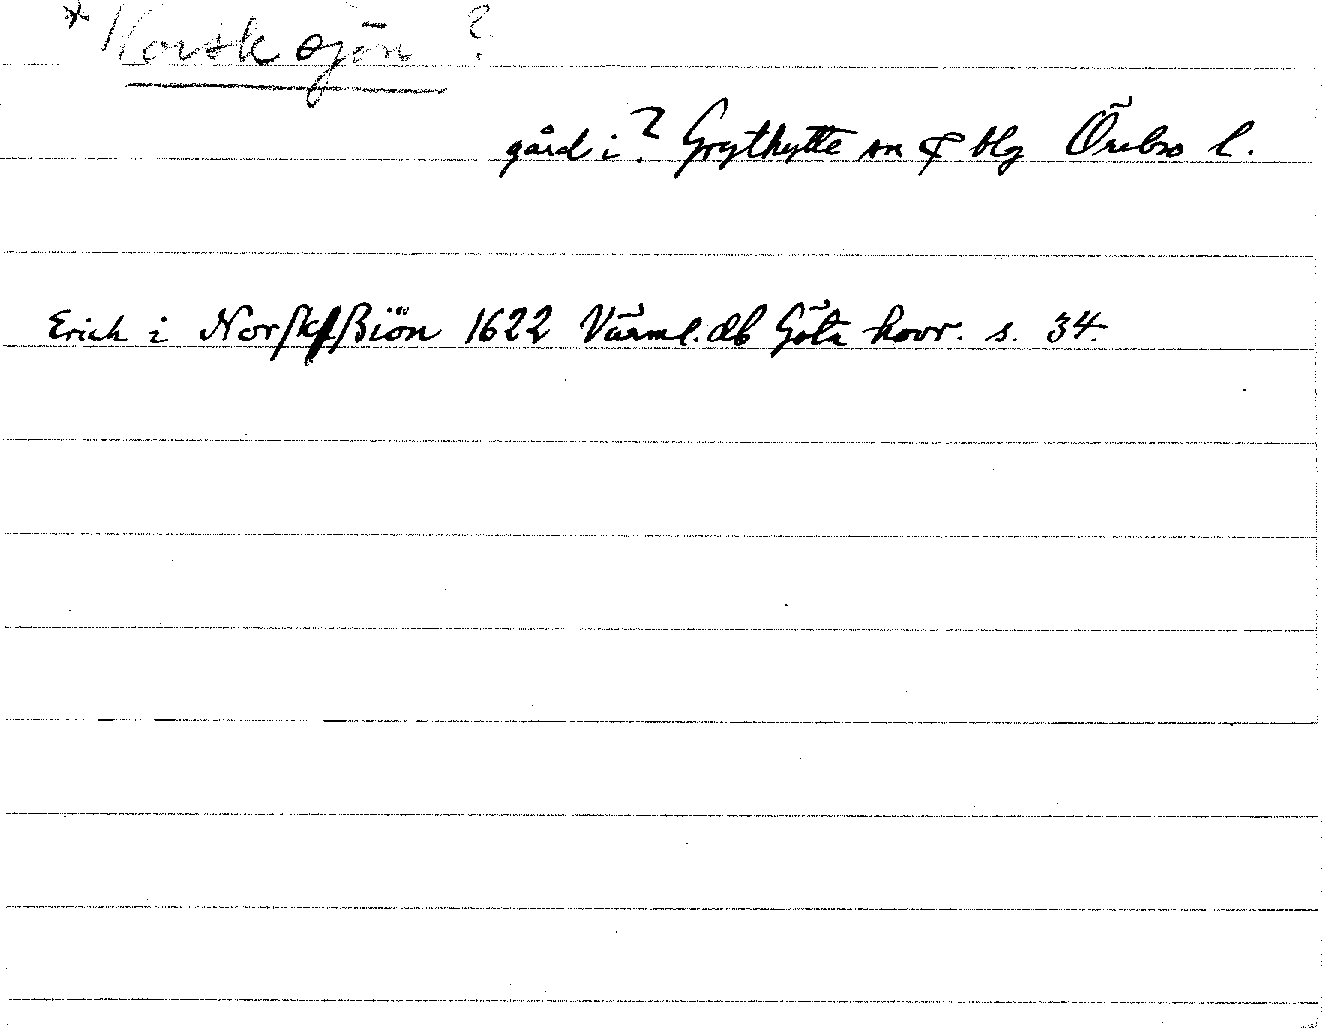 * Norsksjön ?
gård i ? Grythytte sn & blg Örebro l.
Erich i Norſkſßiön 1622 Värml. db Göta hovr. s. 34.